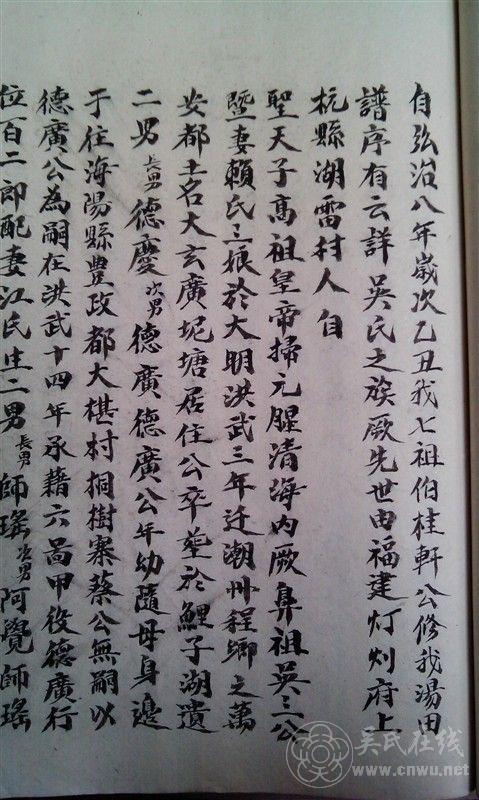 自弘治八年歲次乙丑我七祖伯桂軒公修我湯田
譜序有云詳吳氏之族厥先世由福建灯刈府上
杭縣湖雷村人自
聖天子高祖皇帝掃元腥清海內厥鼻祖吳三公
暨妻賴氏三娘於大明洪武三年迁潮州程鄉之萬
安都土名大玄廣坭塘居住公卒塟於鯉子湖遺
二男長男德慶次男德廣德廣公年幼隨母身邊
于往海陽縣豊政都大椹村桐樹寨蔡公無嗣以
德廣公為嗣在洪武十四年承藉六啚甲役德廣行
位百二郎配妻江氏生二男長男師瑤次男阿覺師瑤
吴氏在线
www.cnwu.net